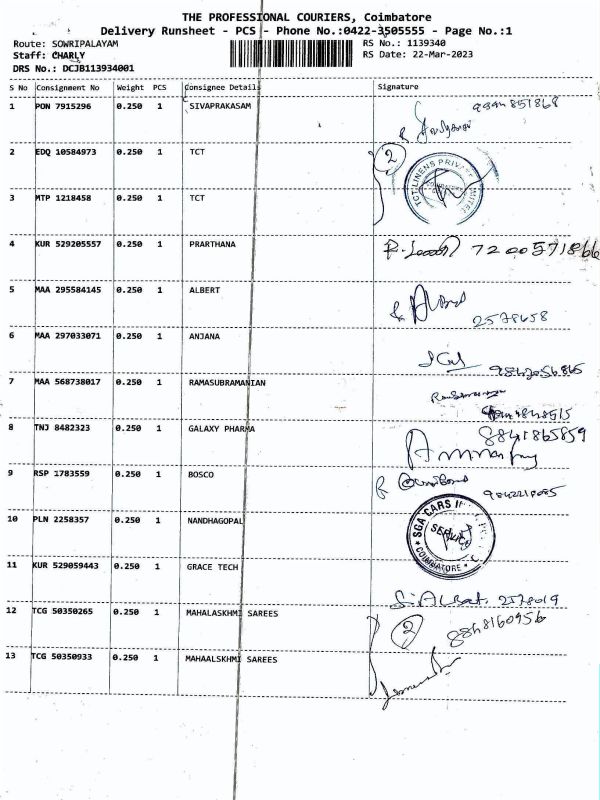 THE PROFESSIONAL COURIERS, Coimbatore
Delivery Runsheet - PCS - Phone No.:0422-3505555 - Page No.:1
Route: SOWRIPALAYAM RS No.: 1139340
Staff: CHARLY RS Date: 22-Mar-2023
DRS No.: DCJB113934001
S No Consignment No Weight PCS Consignee Details Signature
1 PON 7915296 0.250 1 SIVAPRAKASAM
2 EDQ 10584973 0.250 1 TCT 2
TCT LINENS PRIVATE LIMITED
3 MTP 1218458 0.250 1 TCT
4 KUR 529205557 0.250 1 PRARTHANA 7200571866
5 MAA 295584145 0.250 1 ALBERT
2578458
6 MAA 297033071 0.250 1 ANJANA
7 MAA 568738017 0.250 1 RAMASUBRAMANIAN
8 TNJ 8482323 0.250 1 GALAXY PHARMA 8841865859
9 RSP 1783559 0.250 1 BOSCO
10 PLN 2258357 0.250 1 NANDHAGOPAL
SGA CARS SERVICE COIMBATORE
11 KUR 529059443 0.250 1 GRACE TECH
2578019
12 TCG 50350265 0.250 1 MAHALASKHMI SAREES 2 8848160956
13 TCG 50350933 0.250 1 MAHAALSKHMI SAREES